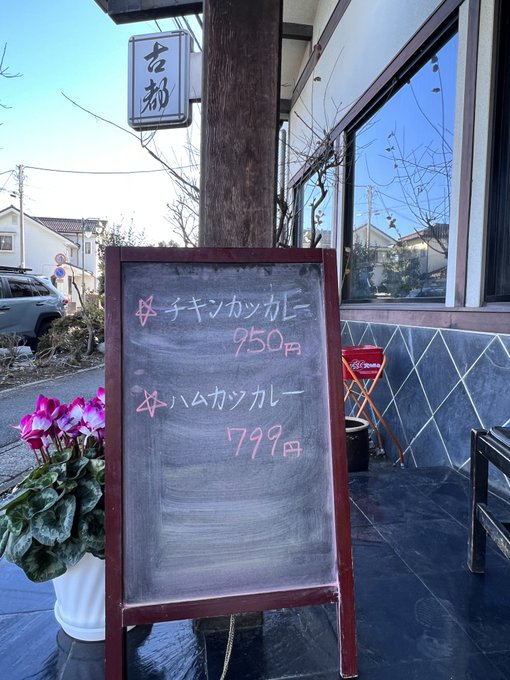 古都
☆チキンカツカレー
950円
☆ハムカツカレー
799円